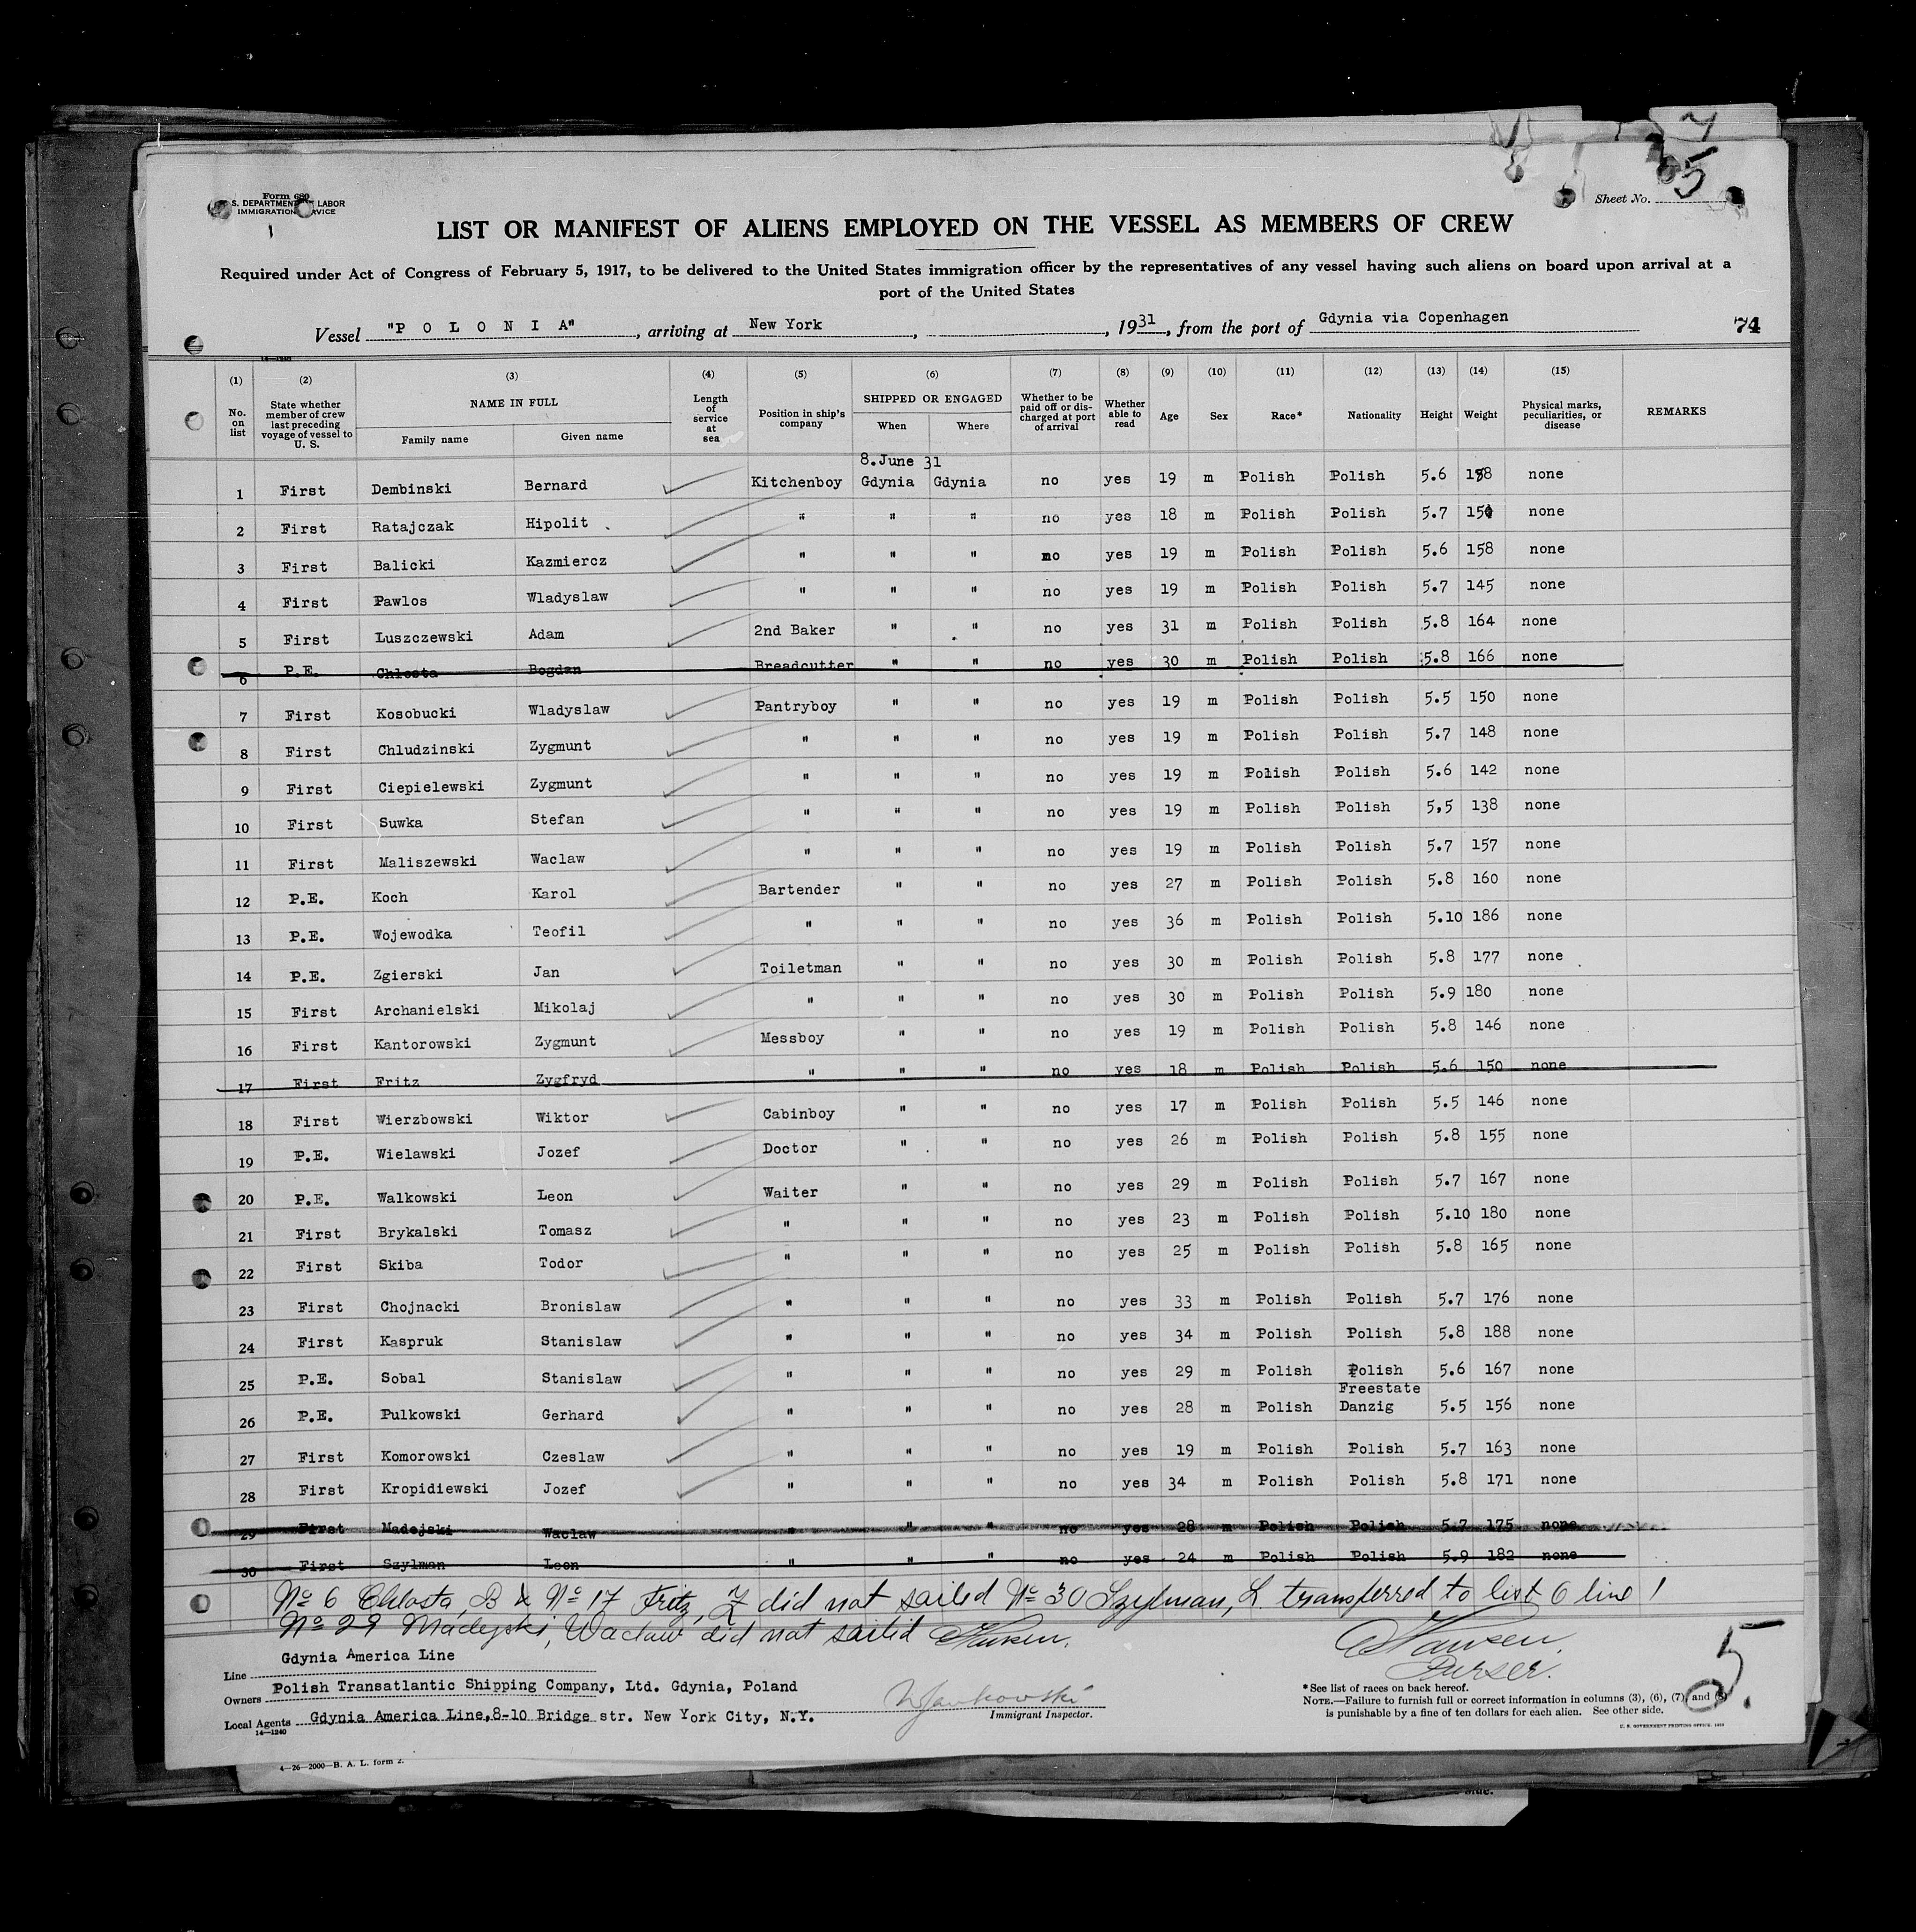 Form 680
S. DEPARTMENT LABOR
IMMIGRATION SERVICE
Sheet No. 5
LIST OR MANIFEST OF ALIENS EMPLOYED ON THE VESSEL AS MEMBERS OF CREW
Required under Act of Congress of February 5, 1917, to be delivered to the United States immigration officer by the representatives of any vessel having such aliens on board upon arrival at a
port of the United States
Vessel "P O L O N I A", arriving at New York, , 1931, from the port of Gdynia via Copenhagen 74
14—1240
(1) (2) (3) (4) (5) (6) (7) (8) (9) (10) (11) (12) (13) (14) (15)
No. on list State whether member of crew last preceding voyage of vessel to U. S. NAME IN FULL Family name Given name Length of service at sea Position in ship's company SHIPPED OR ENGAGED When Where Whether to be paid off or discharged at port of arrival Whether able to read Age Sex Race* Nationality Height Weight Physical marks, peculiarities, or disease REMARKS
8.June 31
1 First Dembinski Bernard Kitchenboy Gdynia Gdynia no yes 19 m Polish Polish 5.6 none
2 First Ratajczak Hipolit " " " no yes 18 m Polish Polish 5.7 none
3 First Balicki Kazmiercz " " " no yes 19 m Polish Polish 5.6 158 none
4 First Pawlos Wladyslaw " " " no yes 19 m Polish Polish 5.7 145 none
5 First Luszczewski Adam 2nd Baker " " no yes 31 m Polish Polish 5.8 164 none
6 P.E. Chlosta Bogdan Breadcutter " " no yes 30 m Polish Polish 5.8 166 none
7 First Kosobucki Wladyslaw Pantryboy " " no yes 19 m Polish Polish 5.5 150 none
8 First Chludzinski Zygmunt " " " no yes 19 m Polish Polish 5.7 148 none
9 First Ciepielewski Zygmunt " " " no yes 19 m Polish Polish 5.6 142 none
10 First Suwka Stefan " " " no yes 19 m Polish Polish 5,5 138 none
11 First Maliszewski Waclaw " " " no yes 19 m Polish Polish 5.7 157 none
12 P.E. Koch Karol Bartender " " no yes 27 m Polish Polish 5.8 160 none
13 P.E. Wojewodka Teofil " " " no yes 36 m Polish Polish 5.10 186 none
14 P.E. Zgierski Jan Toiletman " " no yes 30 m Polish Polish 5.8 177 none
15 First Archanielski Mikolaj " " " no yes 30 m Polish Polish 5.9 180 none
16 First Kantorowski Zygmunt Messboy " " no yes 19 m Polish Polish 5.8 146 none
17 First Fritz Zygfryd " " " no yes 18 m Polish Polish 5.6 150 none
18 First Wierzbowski Wiktor Cabinboy " " no yes 17 m Polish Polish 5.5 146 none
19 P.E. Wielawski Jozef Doctor " " no yes 26 m Polish Polish 5.8 155 none
20 P.E. Walkowski Leon Waiter " " no yes 29 m Polish Polish 5.7 167 none
21 First Brykalski Tomasz " " " no yes 23 m Polish Polish 5.10 180 none
22 First Skiba Todor " " " no yes 25 m Polish Polish 5.8 165 none
23 First Chojnacki Bronislaw " " " no yes 33 m Polish Polish 5.7 176 none
24 First Kaspruk Stanislaw " " " no yes 34 m Polish Polish 5.8 188 none
25 P.E. Sobal Stanislaw " " " no yes 29 m Polish Polish 5.6 167 none
26 P.E. Pulkowski Gerhard " " " no yes 28 m Polish Freestate Danzig 5.5 156 none
27 First Komorowski Czeslaw " " " no yes 19 m Polish Polish 5.7 163 none
28 First Kropidiewski Jozef " " " no yes 34 m Polish Polish 5.8 171 none
29 First Madejski Waclaw " " " no yes 28 m Polish Polish 5.7 175 none
30 First Szylman Leon " " " no yes 24 m Polish Polish 5.9 182 none
No 6 Chlosta, B & No 17 Fritz, Z did not sailed No 30 Szylman, L. transferred to list 6 line 1
No 29 Madejski, Waclaw did not sailed Hansen.
Hansen.
Purser.
5.
Line Gdynia America Line
Owners Polish Transatlantic Shipping Company, Ltd. Gdynia, Poland
Local Agents Gdynia America Line,8-10 Bridge str. New York City, N.Y.
14—1240
Immigrant Inspector.
*See list of races on back hereof.
NOTE.—Failure to furnish full or correct information in columns (3), (6), (7), and (8)
is punishable by a fine of ten dollars for each alien. See other side.
U. S. GOVERNMENT PRINTING OFFICE
4—26—2000—B. A. L. form 2.
side.